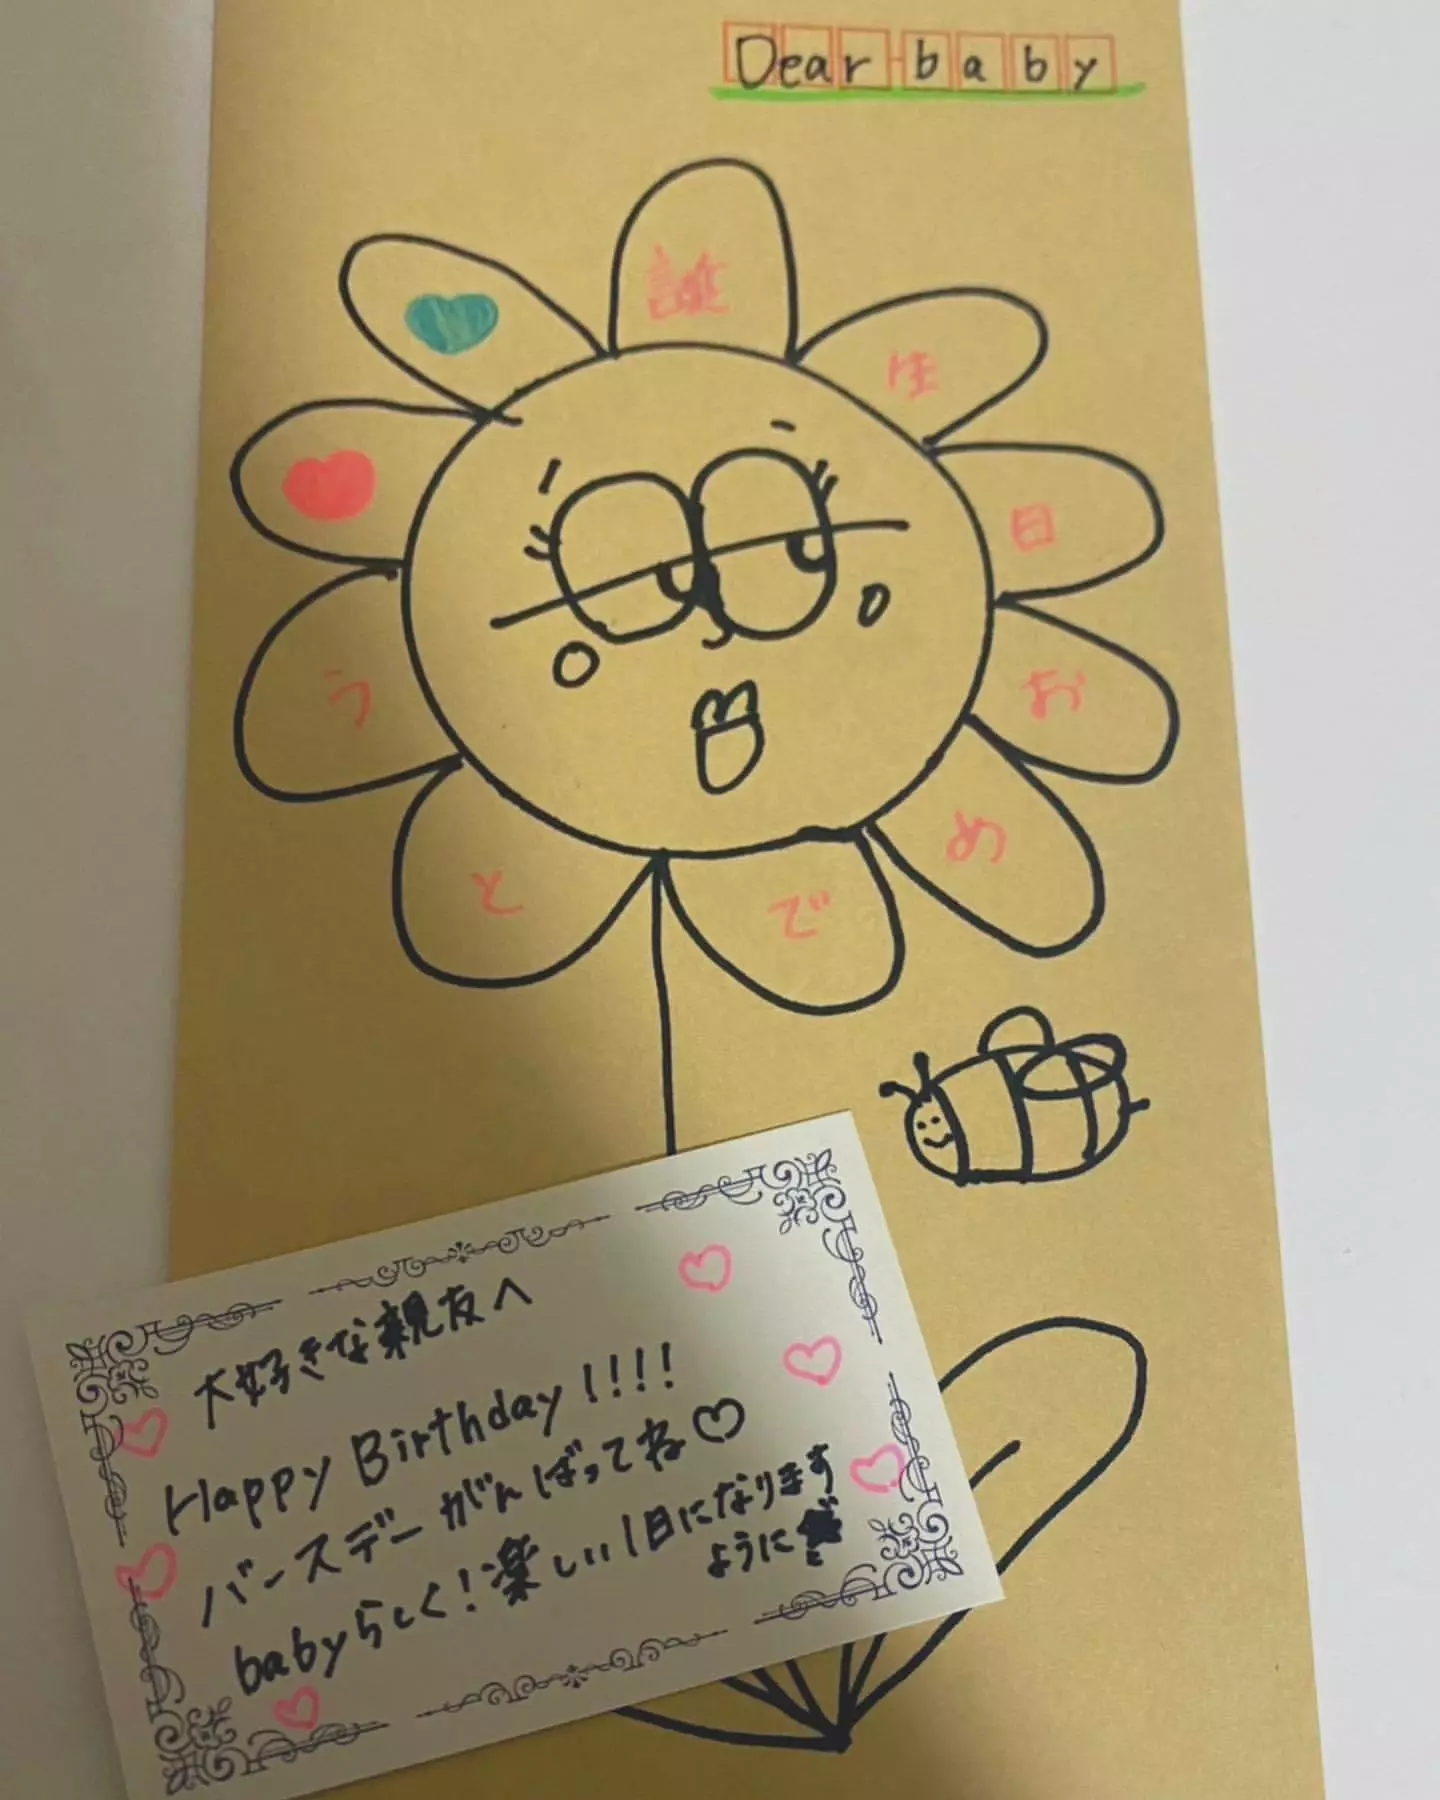 Dear baby
誕
生
日
お
め
で
と
う
大好きな親友へ
Happy Birthday!!!!
バースデーがんばってね♡
babyらしく!楽しい1日になります
ように